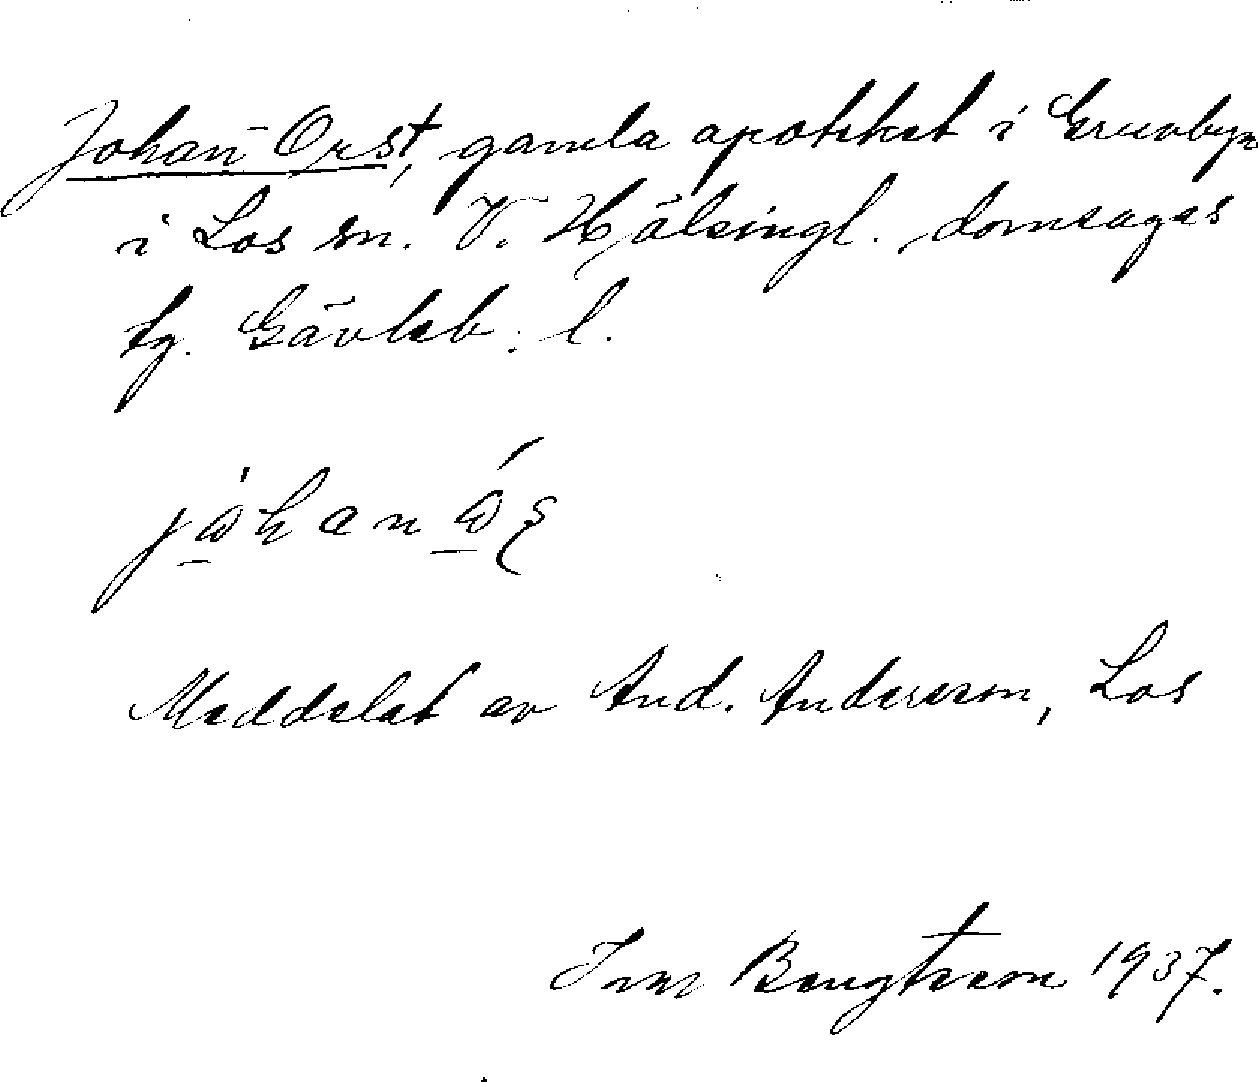 Johan Orst, gamla apoteket i Gruvbyn
i Los sn. V. Hälsingl. domsagas
tg. Gävleb. l.
Meddelat av And. Andersson, Los
Bengtsson 1937.